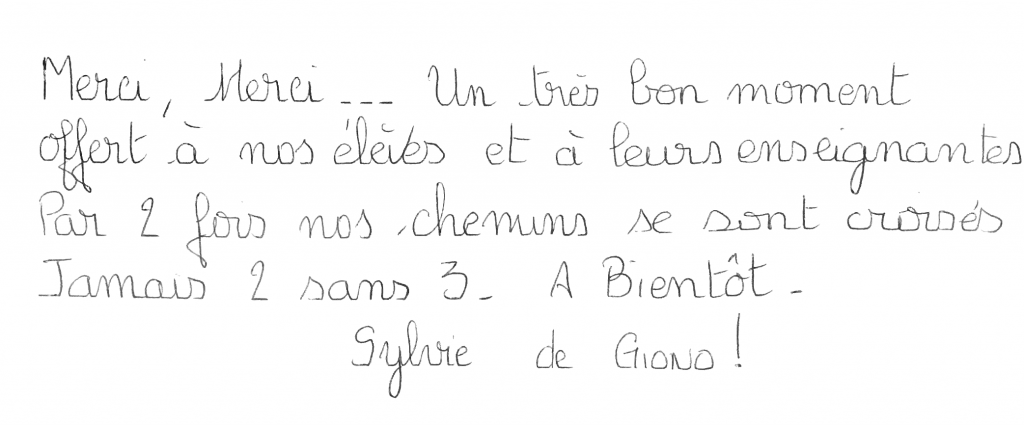 Merci, Merci --- Un très bon moment
offert à nos élèves et à leurs enseignantes
Par 2 fois nos chemins se sont croisés
Jamais 2 sans 3_ A Bientôt_
Sylvie de GIONO !